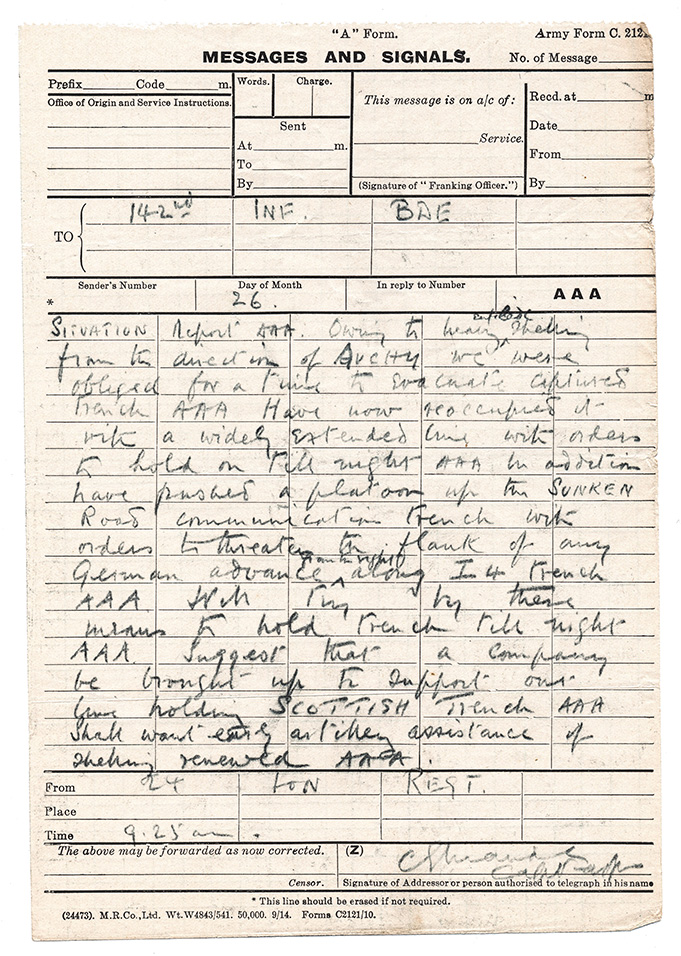 "A" Form. Army Form C. 212
MESSAGES AND SIGNALS. No. of Message
Prefix Code m.
Office of Origin and Service Instructions.
Words. Charge.
Sent
At m.
To
By
This message is on a/c of:
Service.
(Signature of "Franking Officer.")
Recd. at m
Date
From
By
TO 142nd INF. BDE
Sender's Number Day of Month In reply to Number AAA
* 26.
SITUATION Report AAA. Owing to heavy shelling
from the direction of AUCHY we were
obliged for a time to evacuate captured
trench AAA Have now reoccupied it
with a widely extended line with orders
to hold on till night AAA In addition
have pushed a platoon up the SUNKEN
Road communication trench with
orders to threaten the flank of any
German advance (from the right) along I4 trench
AAA Will try by these
means to hold trench till night
AAA Suggest that a company
be brought up to support our
line holding SCOTTISH Trench AAA
Shall want early artillery assistance if
shelling renewed AAA.
From 24 LON REGT.
Place
Time 9.25 am.
The above may be forwarded as now corrected. (Z)
Censor. Signature of Addressor or person authorised to telegraph in his name
* This line should be erased if not required.
(24473). M.R.Co.,Ltd. Wt.W4843/541. 50,000. 9/14. Forms C2121/10.